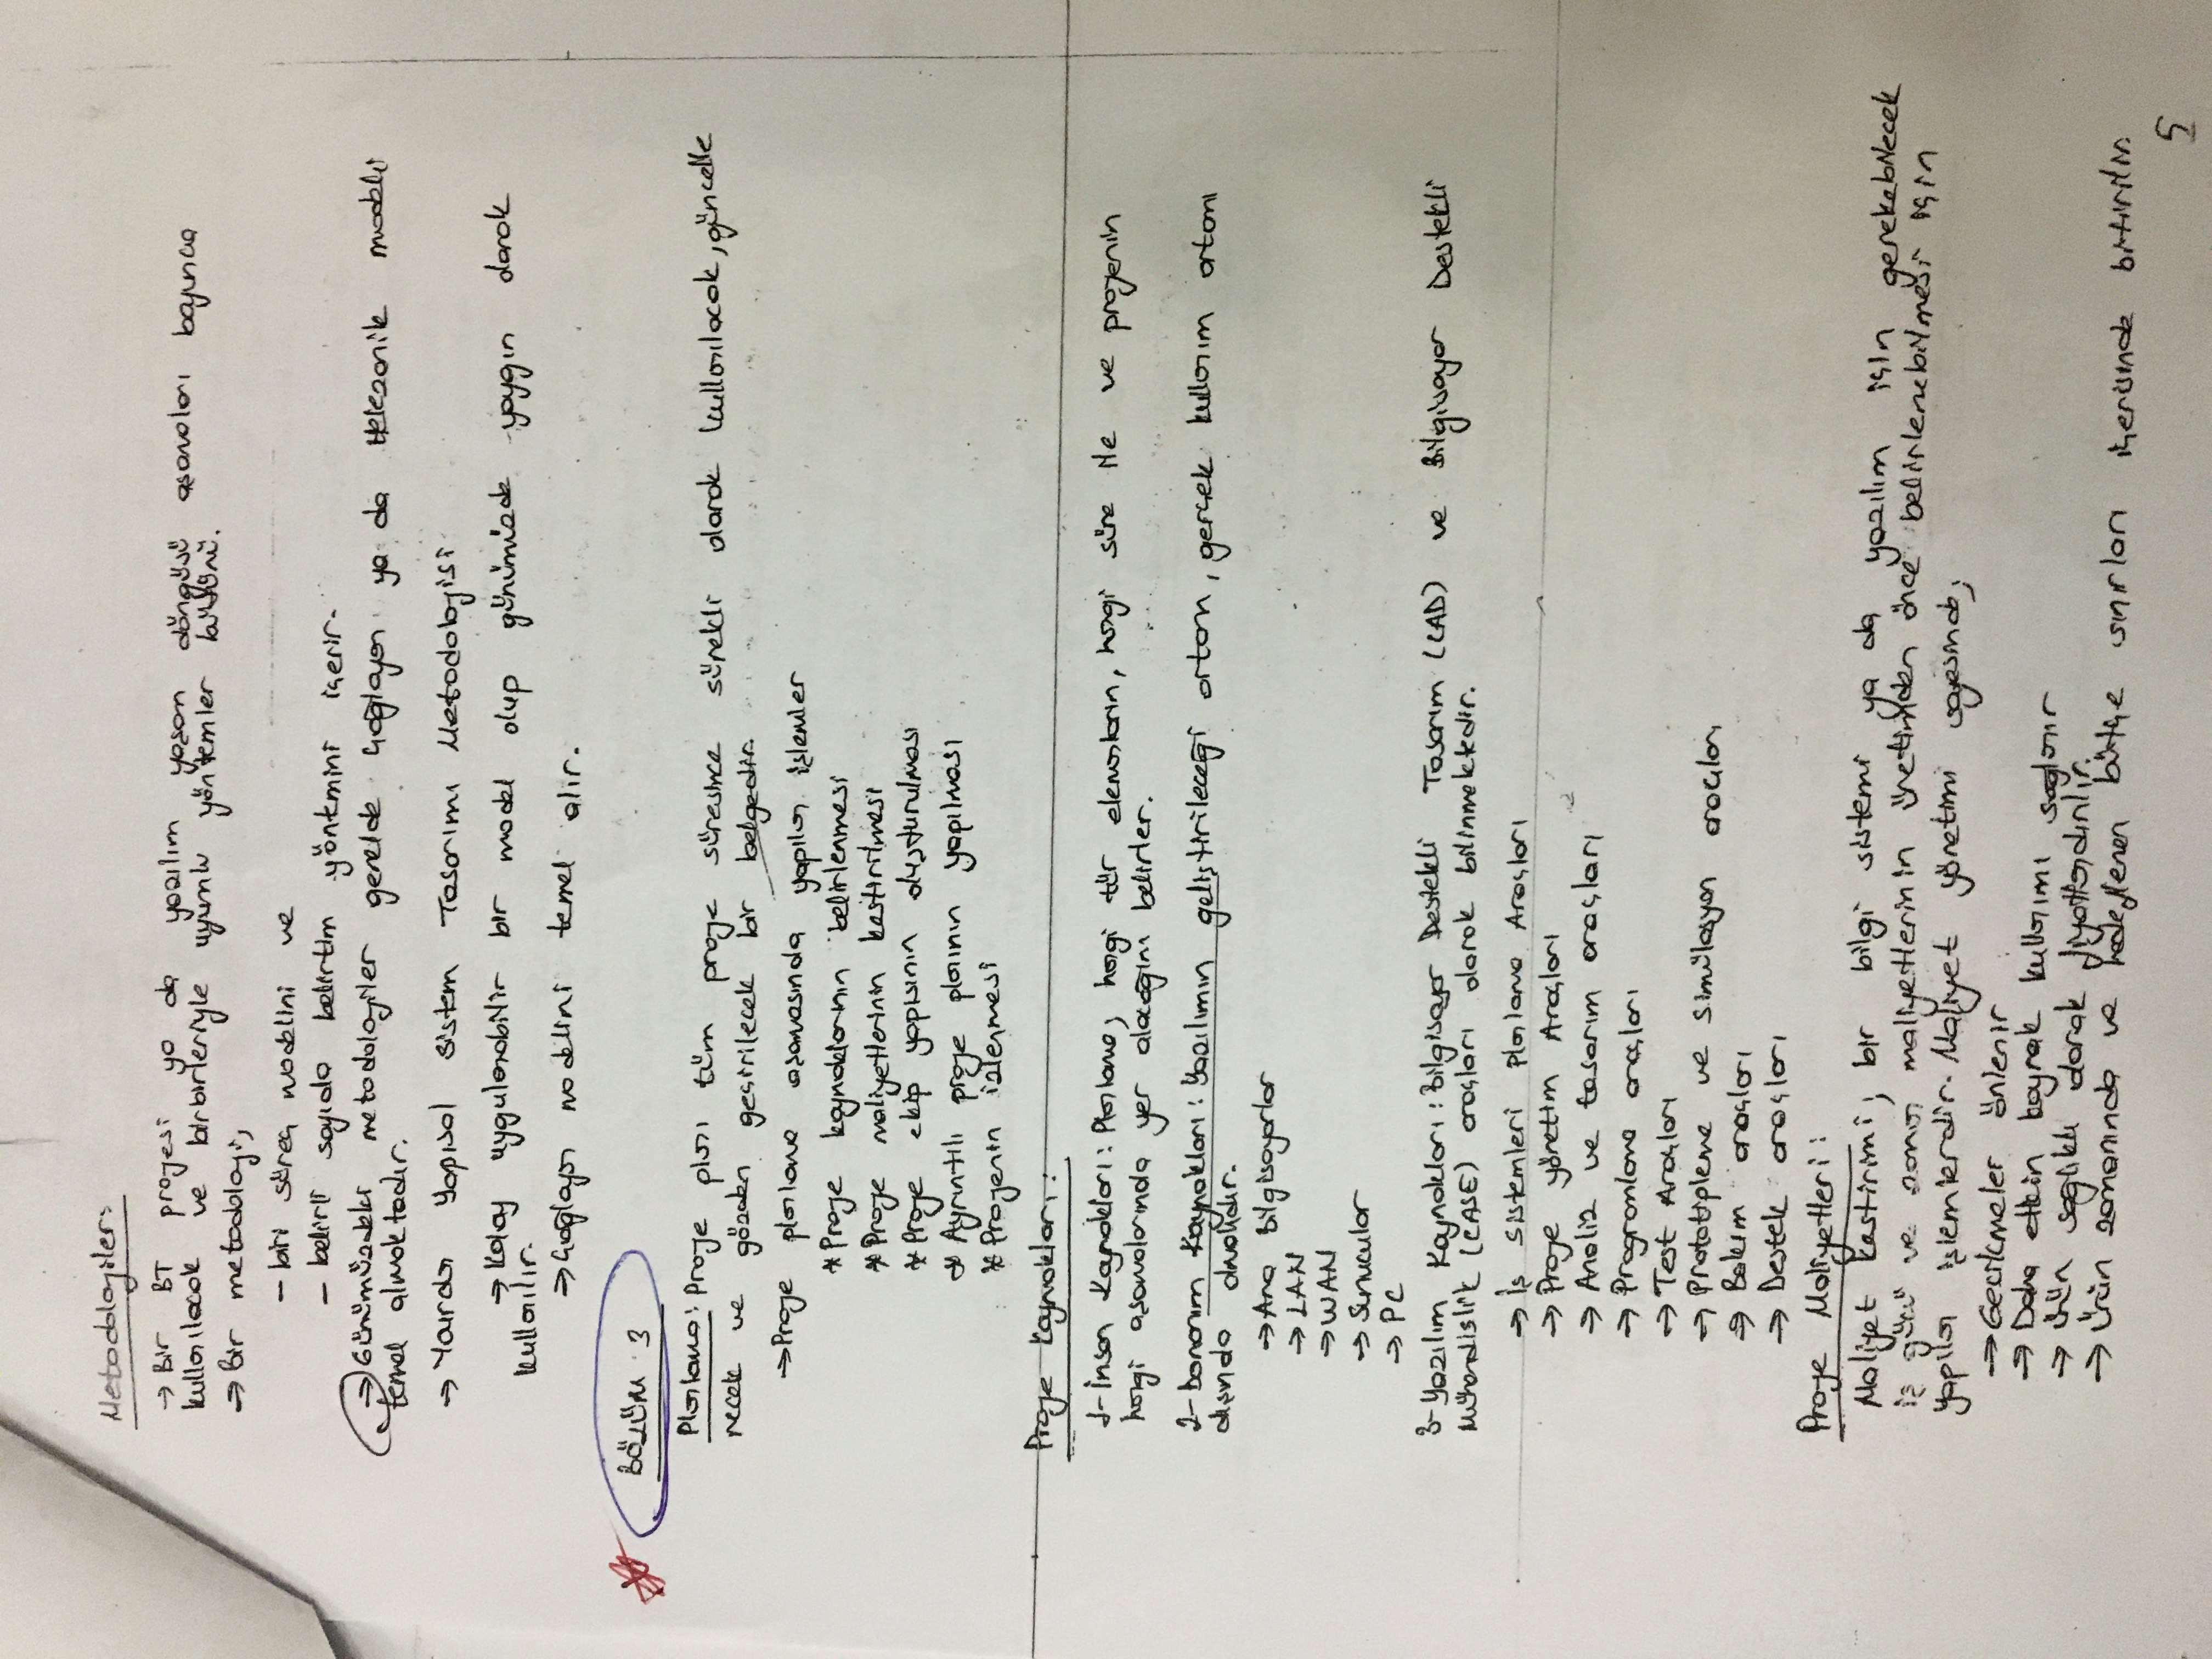 Metodolojiler:
→ Bir BT projesi ya da yazılım yaşam döngüsü aşamaları boyunca
kullanılacak ve birbirleriyle uyumlu yöntemler bütünü.
→ Bir metodoloji,
– biri süreç modelini ve
– belirli sayıda belirtim yöntemini içerir.
→ Günümüzdeki metodolojiler genelde Çağlayan ya da Helezonik modeli
temel almaktadır.
→ Yourdan Yapısal Sistem Tasarımı Metodolojisi
→ Kolay uygulanabilir bir model olup günümüzde yaygın olarak
kullanılır.
→ Çağlayan modelini temel alır.
BÖLÜM 3
Planlama: Proje planı tüm proje süresince sürekli olarak kullanılacak, güncelle
necek ve gözden geçirilecek bir belgedir.
→ Proje planlama aşamasında yapılan işlemler
* Proje kaynaklarının belirlenmesi
* Proje maliyetlerinin kestirilmesi
* Proje ekip yapısının oluşturulması
* Ayrıntılı proje planının yapılması
* Projenin izlenmesi
Proje Kaynakları:
1- İnsan Kaynakları: Planlama; hangi tür elemanların, hangi süre ile ve projenin
hangi aşamalarında yer alacağını belirler.
2- Donanım Kaynakları: Yazılımın geliştirileceği ortam, gerçek kullanım ortamı
dışında olmalıdır.
→ Ana Bilgisayarlar
→ LAN
→ WAN
→ Sunucular
→ PC
3- Yazılım Kaynakları: Bilgisayar Destekli Tasarım (CAD) ve Bilgisayar Destekli
Mühendislik (CASE) araçları olarak bilinmektedir.
→ İş sistemleri planlama Araçları
→ Proje yönetim Araçları
→ Analiz ve tasarım araçları
→ Programlama araçları
→ Test Araçları
→ Prototipleme ve simülasyon araçları
→ Bakım araçları
→ Destek araçları
Proje Maliyetleri:
Maliyet kestirimi; bir bilgi sistemi ya da yazılım için gerekebilecek
iş gücü ve zaman maliyetlerinin üretimden önce belirlenebilmesi için
yapılan işlemlerdir. Maliyet yönetimi sayesinde;
→ Gecikmeler önlenir
→ Daha etkin kaynak kullanımı sağlanır
→ Ürün sağlıklı olarak fiyatlandırılır.
→ Ürün zamanında ve hedeflenen bütçe sınırları içerisinde bitirilir.
5